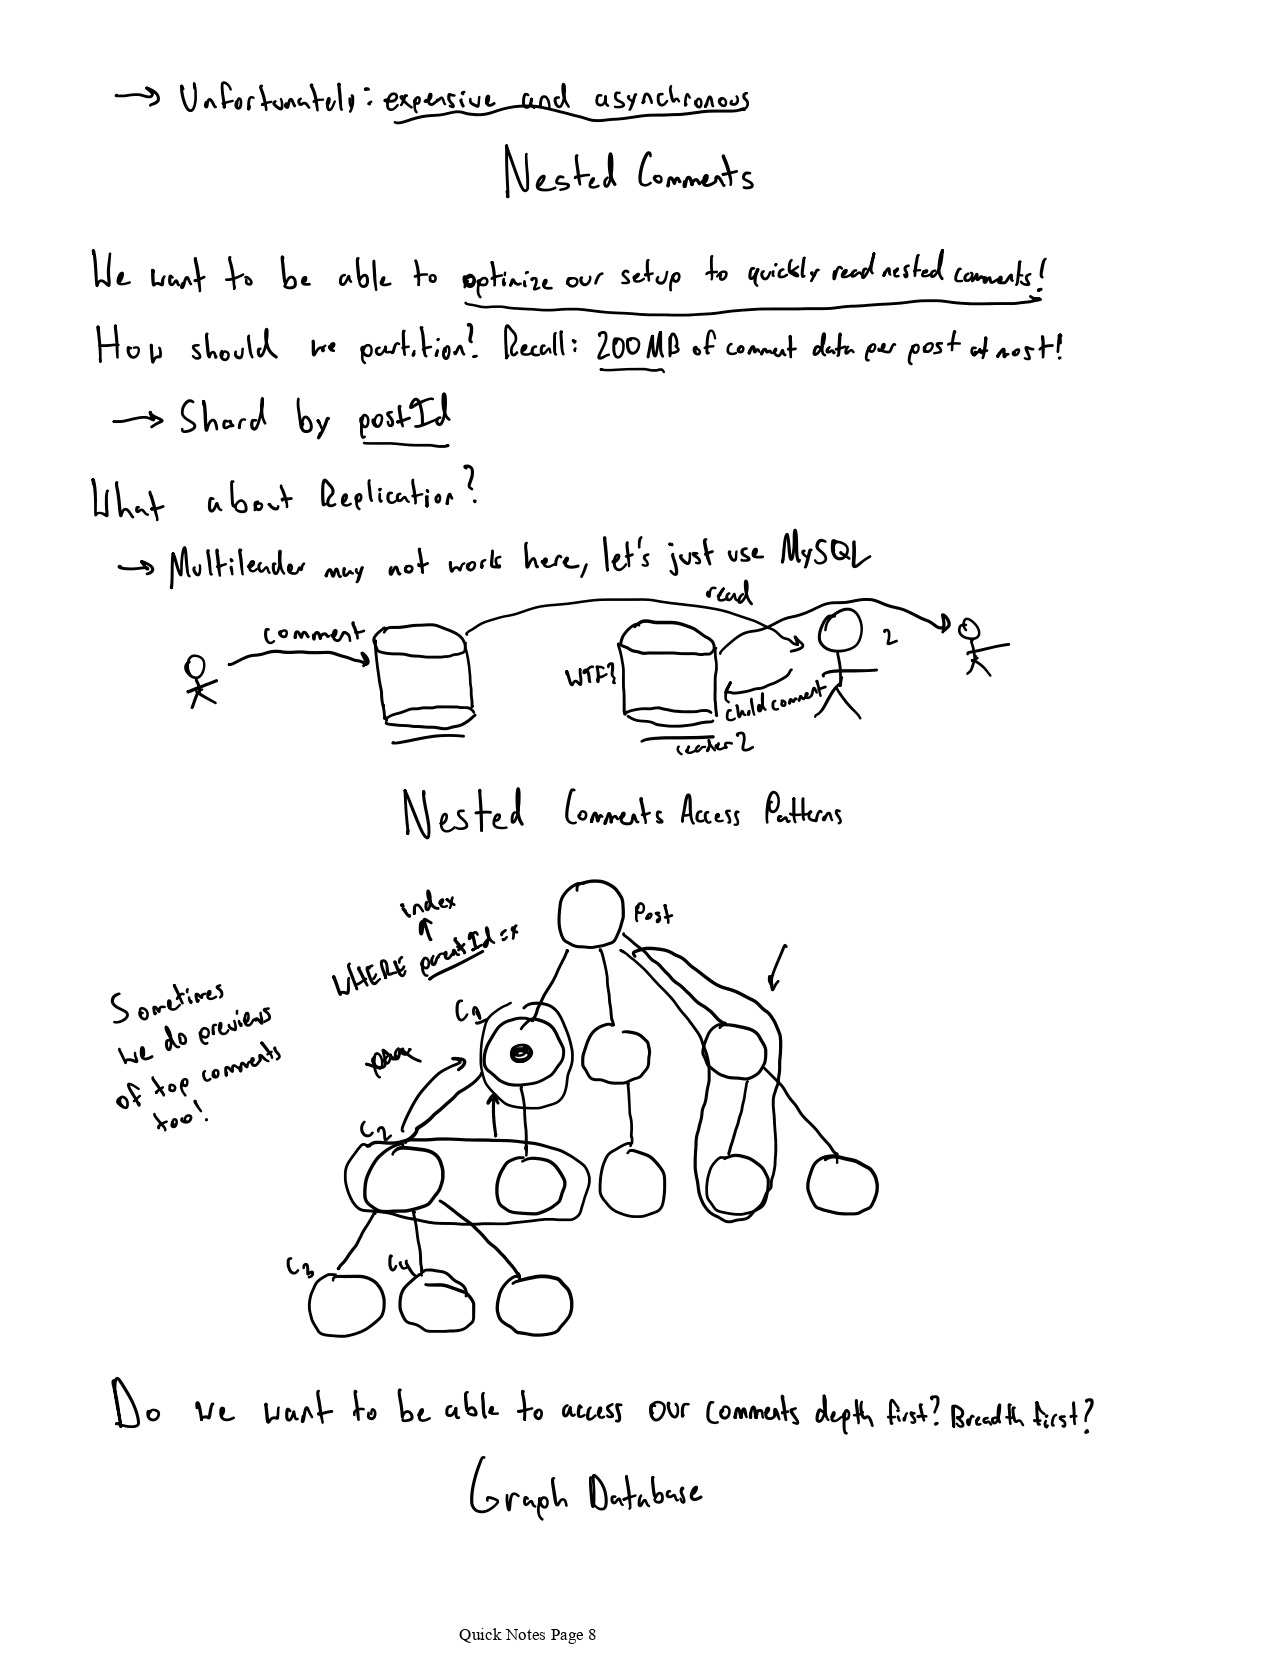 → Unfortunately: expensive and asynchronous
Nested Comments
We want to be able to optimize our setup to quickly read nested comments!
How should we partition? Recall: 200 MB of comment data per post at most!
→ Shard by postId
What about Replication?
→ Multileader may not work here, let's just use MySQL
read
comment
2
WTF?
child comment
leader 2
Nested Comments Access Patterns
index
Post
WHERE parentId = x
Sometimes
we do previews
of top comments
too!
C1
C2
C3
C4
Do we want to be able to access our comments depth first? Breadth first?
Graph Database
Quick Notes Page 8